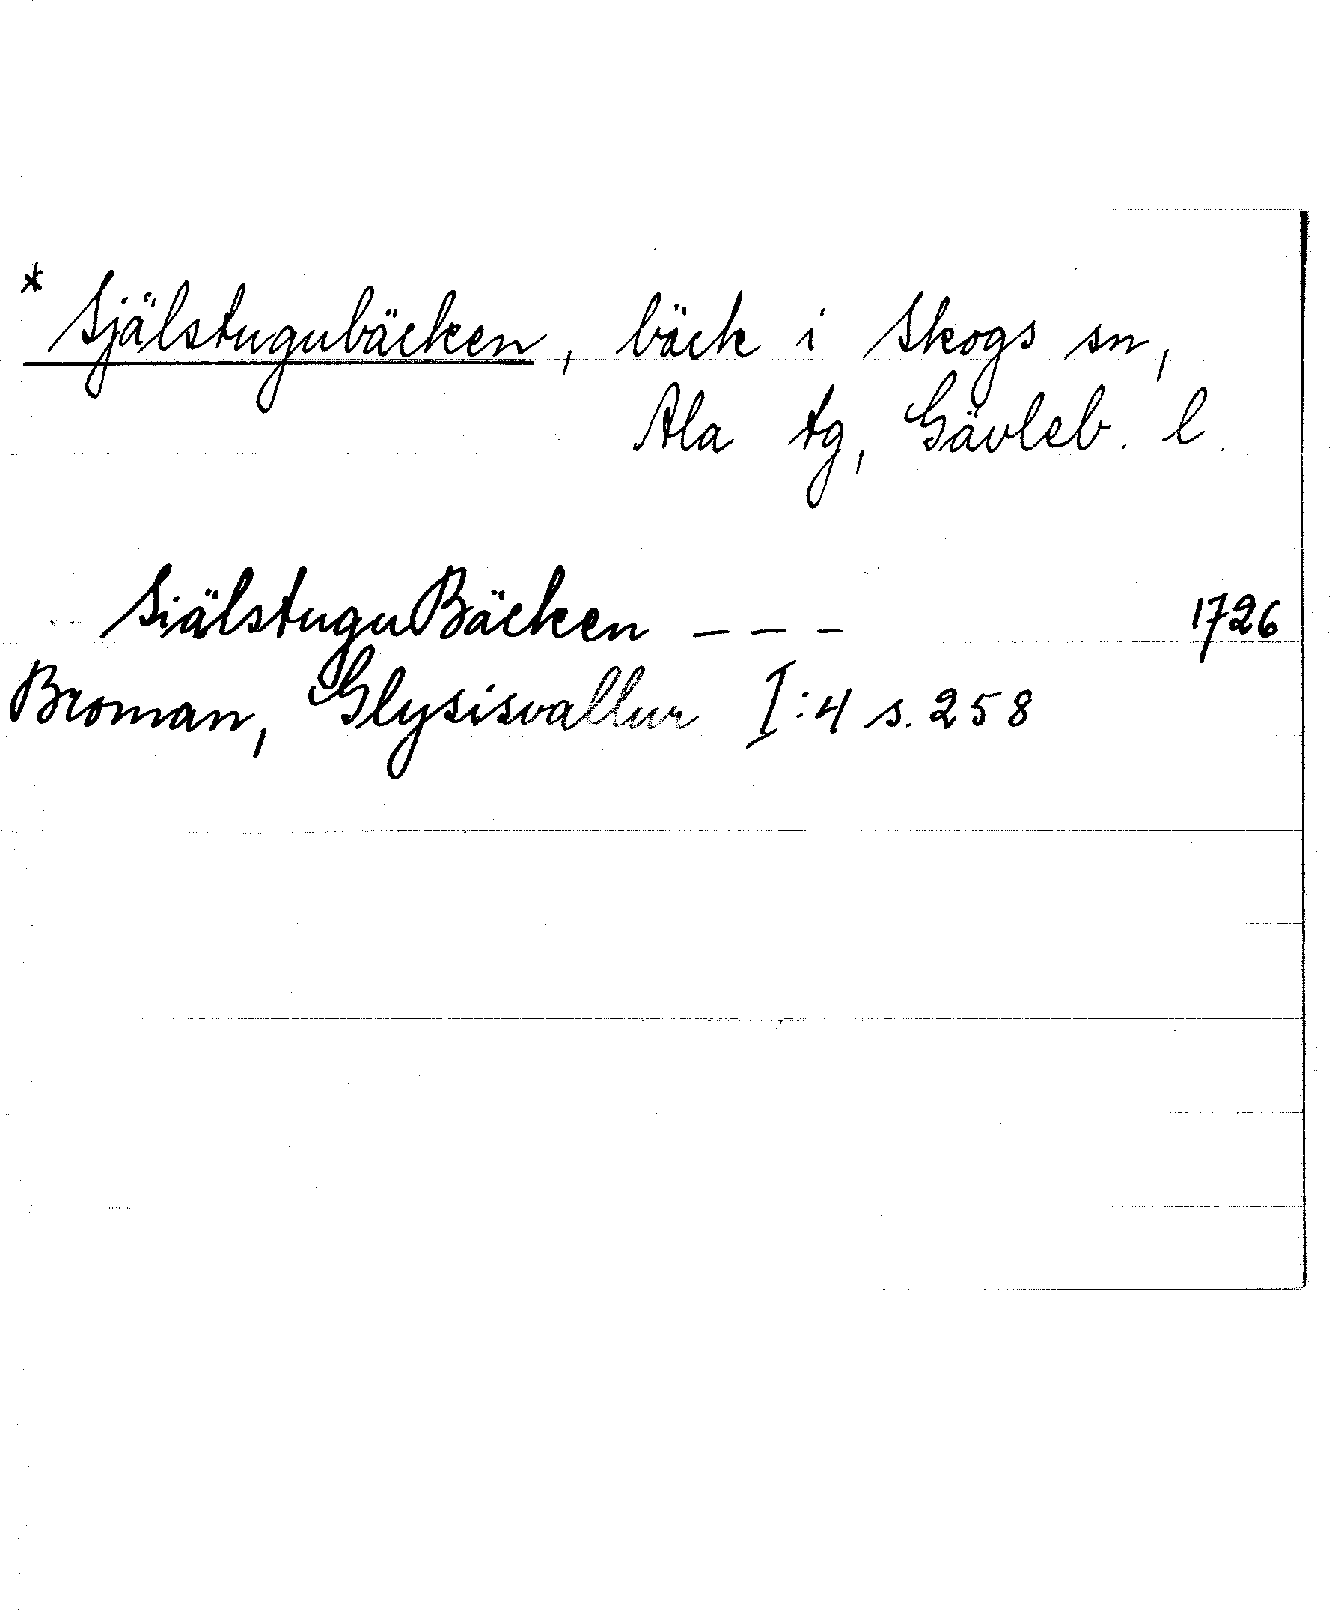 * Själstugubäcken, bäck i Skogs sn,
Ala tg, Gävleb. l.
SiälstuguBäcken – – – 1726
Broman, Glysisvallur I:4 s. 258